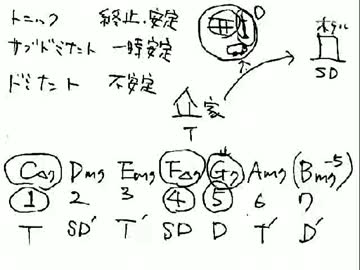 トニック 終止.安定
サブドミナント 一時安定
ドミナント 不安定
ホテル
SD
家
T
C△7 Dm7 Em7 F△7 G7 Am7 (Bm7-5)
1 2 3 4 5 6 7
T SD' T' SD D T' D'